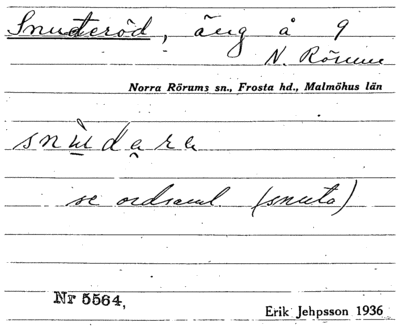 Snuteröd, äng å 9
N. Rörum
Norra Rörums sn., Frosta hd., Malmöhus län
se ordsaml. (snuta)
Nr 5564,
Erik Jehpsson 1936